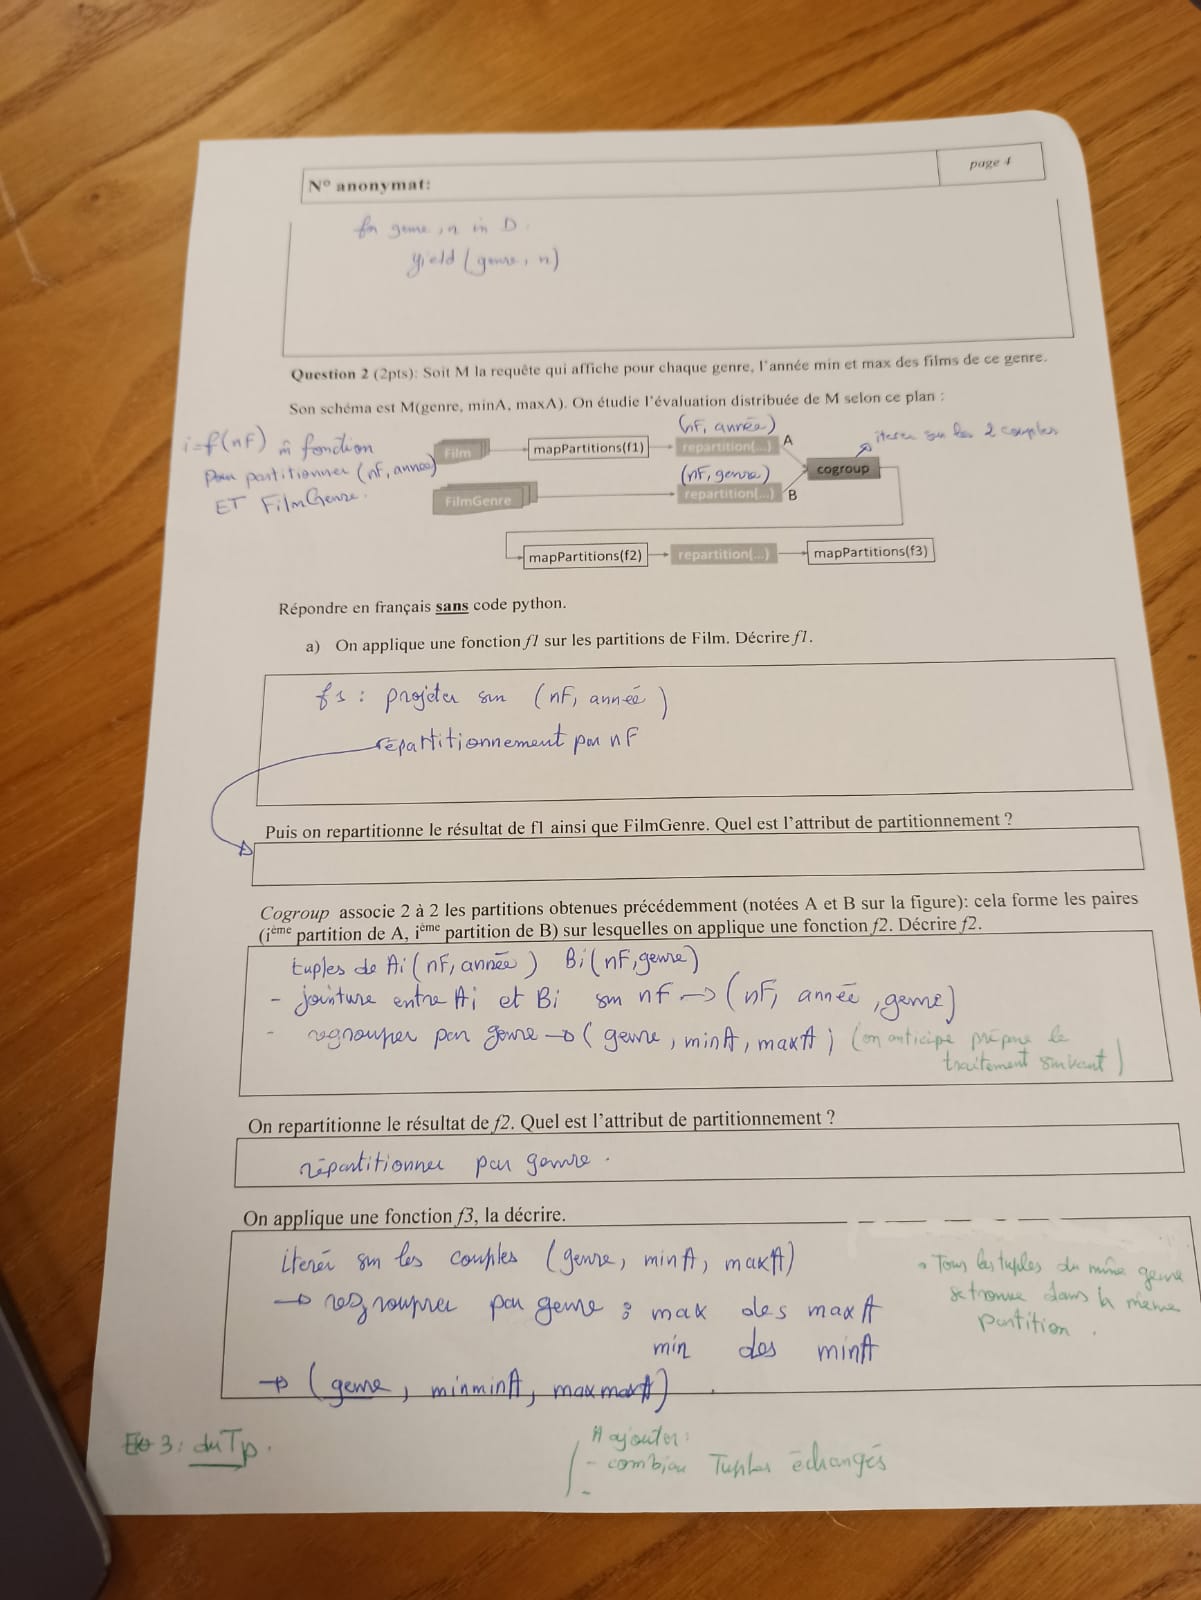 N° anonymat:
page 4
for genre, n in D.
yield (genre, n)
Question 2 (2pts): Soit M la requête qui affiche pour chaque genre, l'année min et max des films de ce genre.
Son schéma est M(genre, minA, maxA). On étudie l'évaluation distribuée de M selon ce plan :
i=f(nF) m̂ fonction
pour partitionner (nF, année)
ET FilmGenre.
(nF, année)
Film
mapPartitions(f1)
repartition(...)
A
iterer sur les 2 couples
(nF, genre)
cogroup
FilmGenre
repartition(...)
B
mapPartitions(f2)
repartition(...)
mapPartitions(f3)
Répondre en français sans code python.
a) On applique une fonction f1 sur les partitions de Film. Décrire f1.
f1 : projeter sur (nF, année)
répartitionnement par nF
Puis on repartitionne le résultat de f1 ainsi que FilmGenre. Quel est l'attribut de partitionnement ?
Cogroup associe 2 à 2 les partitions obtenues précédemment (notées A et B sur la figure): cela forme les paires
(ième partition de A, ième partition de B) sur lesquelles on applique une fonction f2. Décrire f2.
tuples de Ai (nF, année) Bi (nF, genre)
- jointure entre Ai et Bi sur nf → (nF, année, genre)
- regrouper par genre → (genre, minA, maxA) (on anticipe prépare le
traitement suivant)
On repartitionne le résultat de f2. Quel est l'attribut de partitionnement ?
répartitionner par genre.
On applique une fonction f3, la décrire.
iterér sur les couples (genre, minA, maxA)
→ regrouper par genre : max des maxA
min des minA
→ (genre, minminA, maxmaxA)
• Tous les tuples du même genre
se trouve dans la même
partition.
Ex 3: du Tp.
A ajouter:
- combien Tuples échangés
-